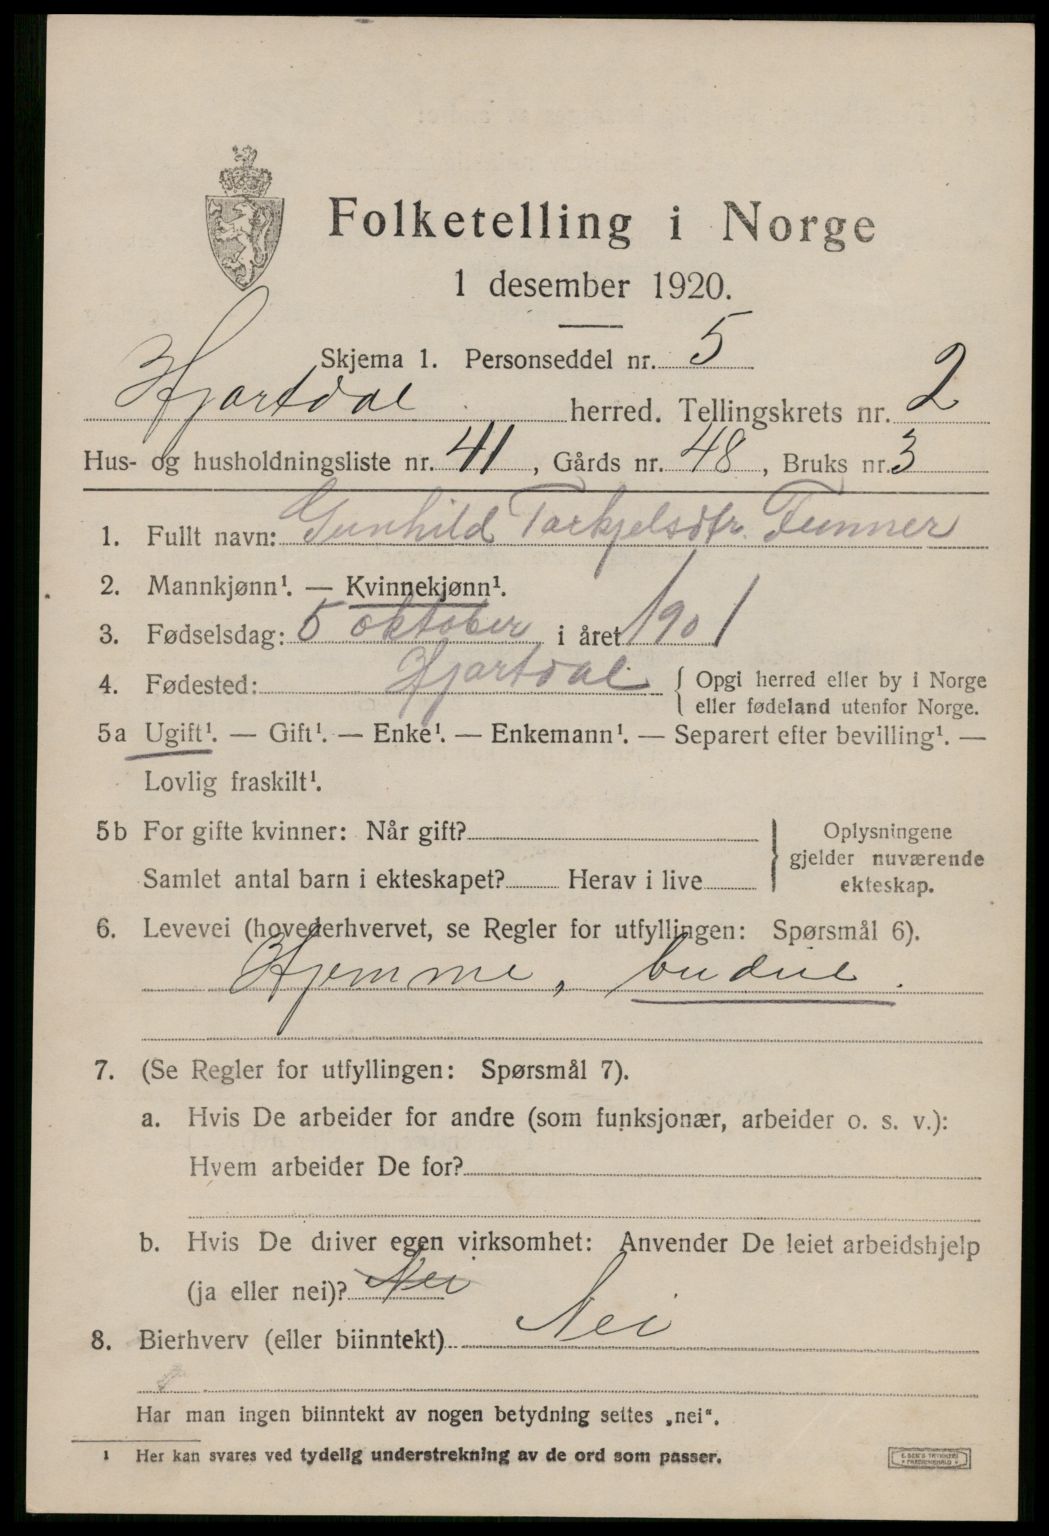 Folketelling i Norge
1 desember 1920.
Skjema 1. Personseddel nr. 5
Hjartdal herred. Tellingskrets nr. 2
Hus- og husholdningsliste nr. 41, Gårds nr. 48, Bruks nr. 3
1. Fullt navn: Gunhild Tarkjelsdtr. Funner
2. Mannkjønn¹. — Kvinnekjønn¹.
3. Fødselsdag: 5 oktober i året 1901
4. Fødested: Hjartdal { Opgi herred eller by i Norge
eller fødeland utenfor Norge.
5a Ugift¹. — Gift¹. — Enke¹. — Enkemann¹. — Separert efter bevilling¹. —
Lovlig fraskilt¹.
5b For gifte kvinner: Når gift?
Samlet antal barn i ekteskapet? Herav i live
} Oplysningene
gjelder nuværende
ekteskap.
6. Levevei (hovederhvervet, se Regler for utfyllingen: Spørsmål 6).
Hjemme, budeie.
7. (Se Regler for utfyllingen: Spørsmål 7).
a. Hvis De arbeider for andre (som funksjonær, arbeider o. s. v.):
Hvem arbeider De for?
b. Hvis De driver egen virksomhet: Anvender De leiet arbeidshjelp
(ja eller nei)? Nei
8. Bierhverv (eller biinntekt) Nei
Har man ingen biinntekt av nogen betydning settes „nei“.
¹ Her kan svares ved tydelig understrekning av de ord som passer.